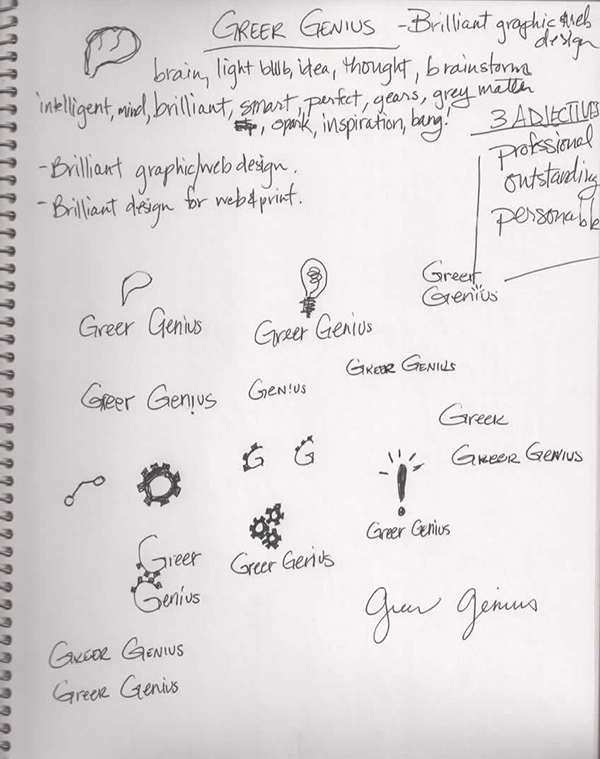 GREER GENIUS - Brilliant graphic & web
design
brain, light bulb, idea, thought, brainstorm
intelligent, mind, brilliant, smart, perfect, gears, grey matter
, spark, inspiration, bang!
3 ADJECTIVES
professional
outstanding
personable
- Brilliant graphic/web design.
- Brilliant design for web & print.
Greer Genius
Greer Genius
Greer
Genius
Greer Genius
GEN!US
GREER GENIUS
GREER
GREER GENIUS
G G
Greer Genius
Greer
Genius
Greer Genius
Greer Genius
GREER GENIUS
GREER GENIUS